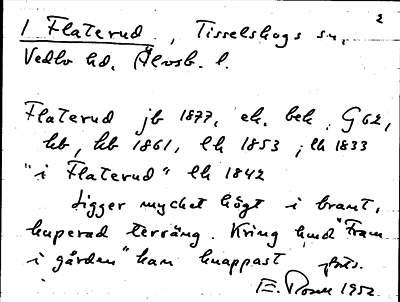 2
1 Flaterud, Tisselskogs sn,
Vedbo hd. Älvsb. l.
Flaterud jb 1877, ek. bek. G62,
kb, hb 1861, lh 1853, lh 1833
"i Flaterud" lh 1842
Ligger mycket högt i brant,
kuperad terräng. Kring "Fram
i gården" kan knappast
E. 1952